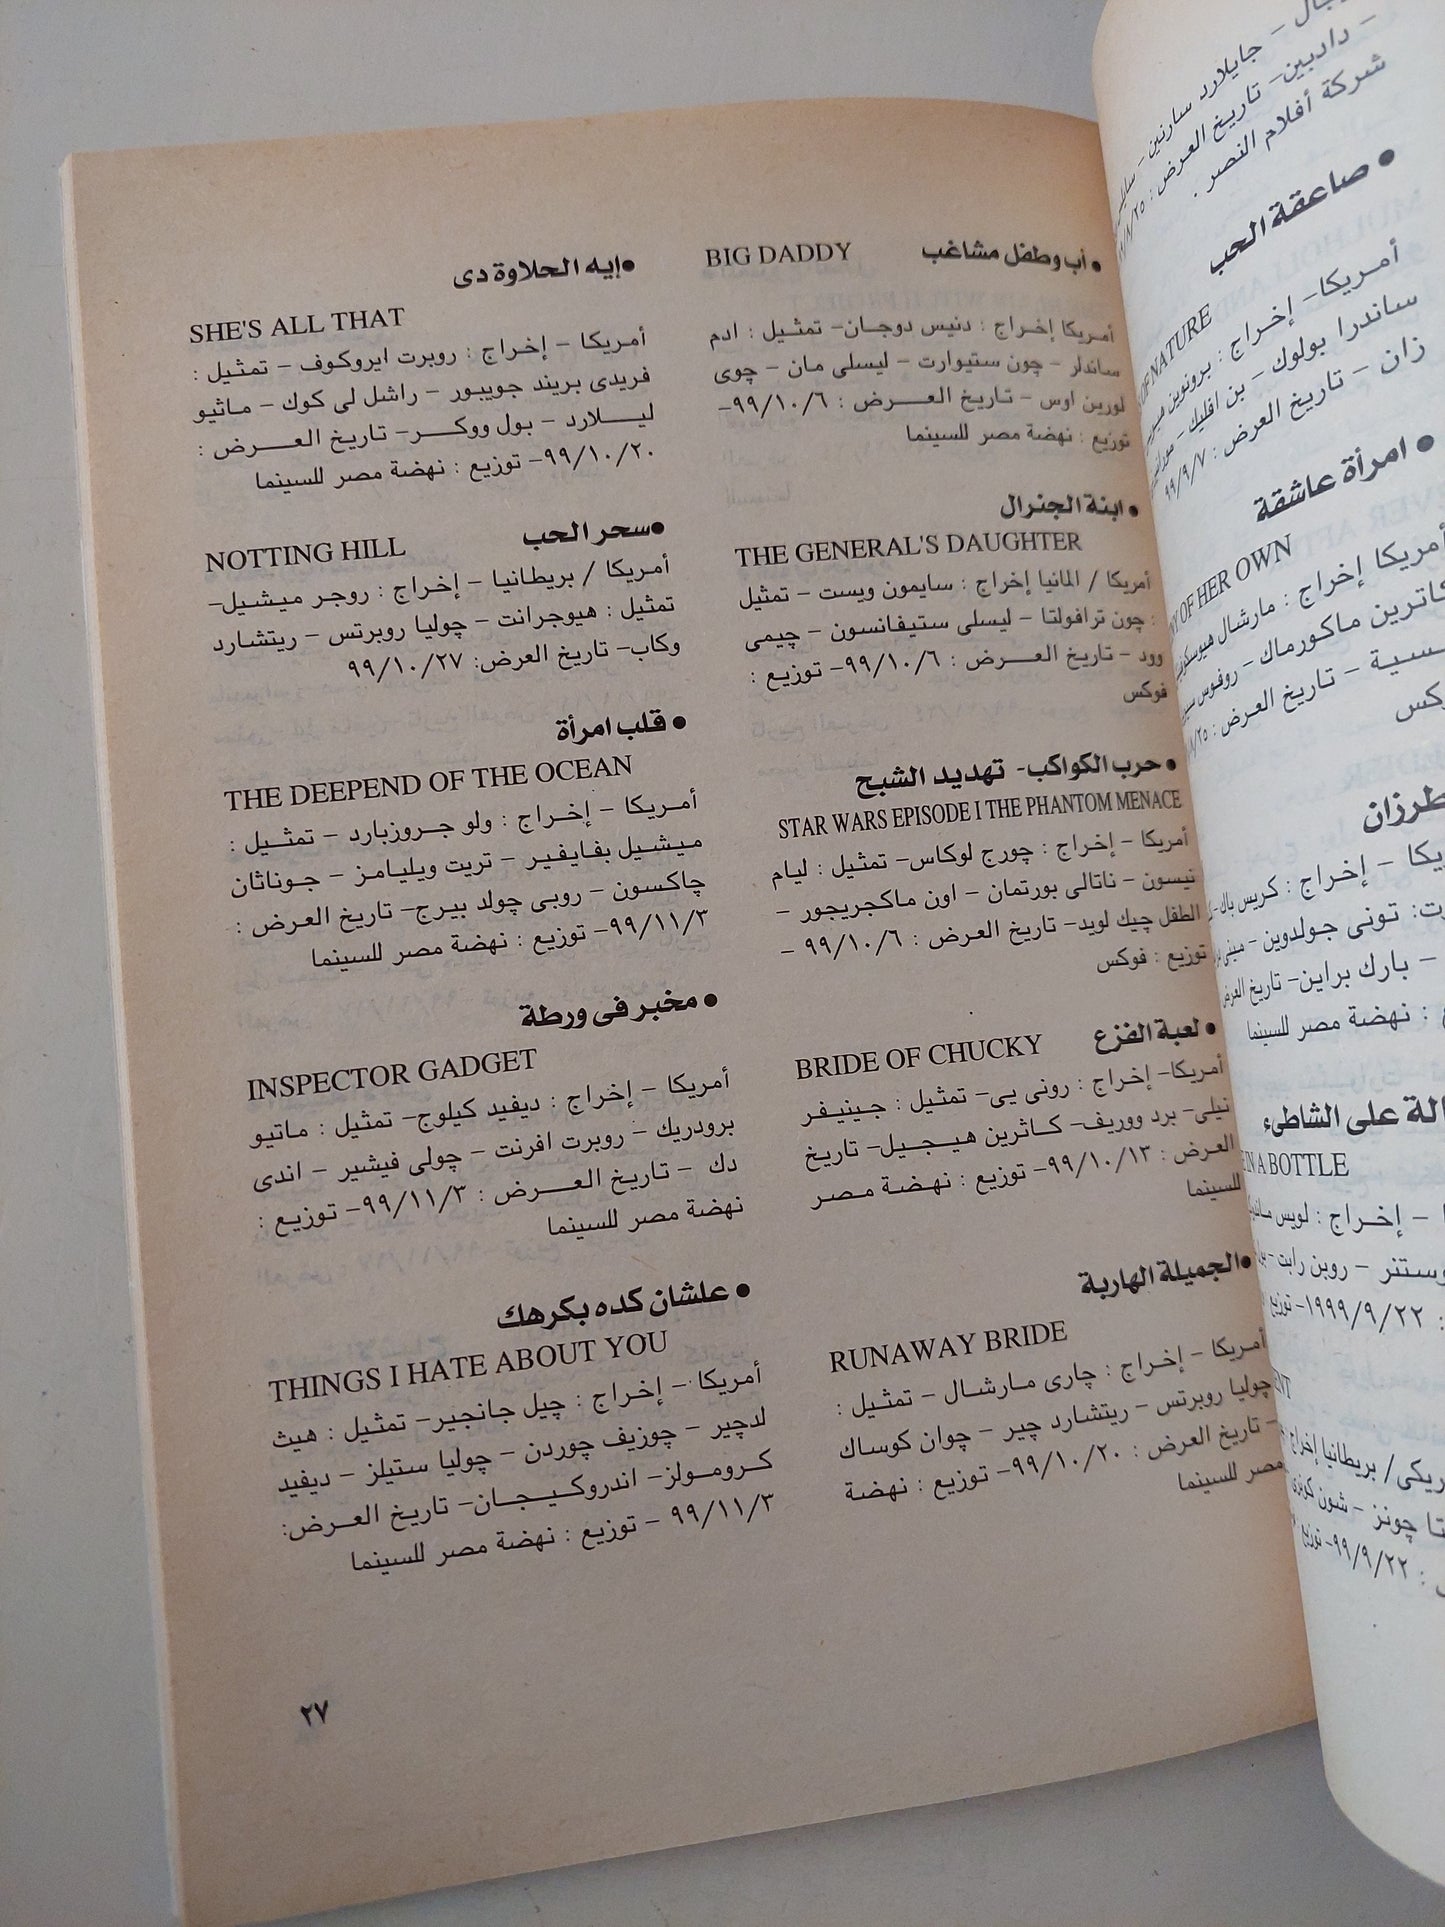 • أب وطفل مشاغب BIG DADDY
أمريكا إخراج : دنيس دوجان– تمثيل : ادم
ساندلر – چون ستيوارت – ليسلى مان – چوى
لورين اوس – تاريخ العـــرض : ٩٩/١٠/٦–
توزيع : نهضة مصر للسينما
• ابنة الجنرال
THE GENERAL'S DAUGHTER
أمريكا / المانيا إخراج : سايمون ويست – تمثيل
: چون ترافولتا – ليسلى ستيفانسون – چيمى
وود – تاريخ العـــرض : ٩٩/١٠/٦– توزيع :
فوكس
• حرب الكواكب- تهديد الشبح
STAR WARS EPISODE I THE PHANTOM MENACE
أمريكا – إخراج : چورچ لوكاس– تمثيل : ليام
نيسون – ناتالى بورتمان – اون ماكجريجور –
الطفل چيك لويد– تاريخ العرض : ٩٩/١٠/٦ –
توزيع : فوكس
• لعبة الفزع BRIDE OF CHUCKY
أمريكا– إخراج : رونى يى– تمثيل : جـينيـفر
نيلى– برد ووريف– كـاثرين هيـجـيل– تاريخ
العرض : ٩٩/١٠/١٣– توزيع : نهـضـة مـصـر
للسينما
•الجميلة الهاربة
RUNAWAY BRIDE
أمريكا – إخراج : چارى مـارشـال – تمثيل :
چوليا روبرتس – ريتشارد چير – چوان كوساك
– تاريخ العرض : ٩٩/١٠/٢٠– توزيع : نهضة
مصر للسينما
•إيه الحلاوة دى
SHE'S ALL THAT
أمريكا – إخراج : روبرت ايروكوف – تمثيل :
فريدى بريند جويبور – راشل لى كوك – ماثيو
ليـــلارد – بول ووكــر– تاريخ العـرض :
٩٩/١٠/٢٠– توزيع : نهضة مصر للسينما
•سحر الحب NOTTING HILL
أمريكا / بريطانيا – إخراج : روجر ميشيل–
تمثيل : هيوجرانت – چوليا روبرتس – ريتشارد
وكاب– تاريخ العرض: ٩٩/١٠/٢٧
• قلب امرأة
THE DEEPEND OF THE OCEAN
أمريكا – إخراج : ولو جروزبارد – تمثيل :
ميشيل بفايفير – تريت ويليامز – جوناثان
چاكسون – روبى چولد بيرج– تاريخ العرض :
٩٩/١١/٣– توزيع : نهضة مصر للسينما
• مخبر فى ورطة
INSPECTOR GADGET
أمريكا – إخراج : ديفيد كيلوج– تمثيل : ماتيو
برودريك – روبرت افرنت – چولى فيشير – اندى
دك – تاريخ العـــرض : ٩٩/١١/٣– توزيـع :
نهضة مصر للسينما
• علشان كده بكرهك
THINGS I HATE ABOUT YOU
أمريكا – إخراج : چيل جانجير– تمثيل : هيث
لدچير – چوزيف چوردن – چوليا ستيلز – ديفيد
كـرومـولز– اندروكـيـجـان– تاريخ العـرض:
٩٩/١١/٣ – توزيع : نهضة مصر للسينما
٢٧
– جايلارد سارنين –
– دادبين– تاريخ العرض :
شركة أفلام النصر .
• صاعقة الحب
OF NATURE
أمـريكا– إخـراج : برونوين
ساندرا بولوك – بن افليك –
زان – تاريخ العرض : ٩٩/٩/٧
• امرأة عاشقة
OF HER OWN
أمريكا إخراج : مارشال
كاترين ماكورماك – روفوس
– تاريخ العرض :
فوكس
طرزان
– إخراج : كريس باك–
تونى جولدوين –
– بارك براين– تاريخ العرض
: نهضة مصر للسينما
على الشاطىء
IN A BOTTLE
– إخراج : لويس
– روبن رايت –
: ١٩٩٩/٩/٢٢– توزيع
/ بريطانيا إخراج
چونز – شون كونرى
: ٩٩/٩/٢٢– توزيع